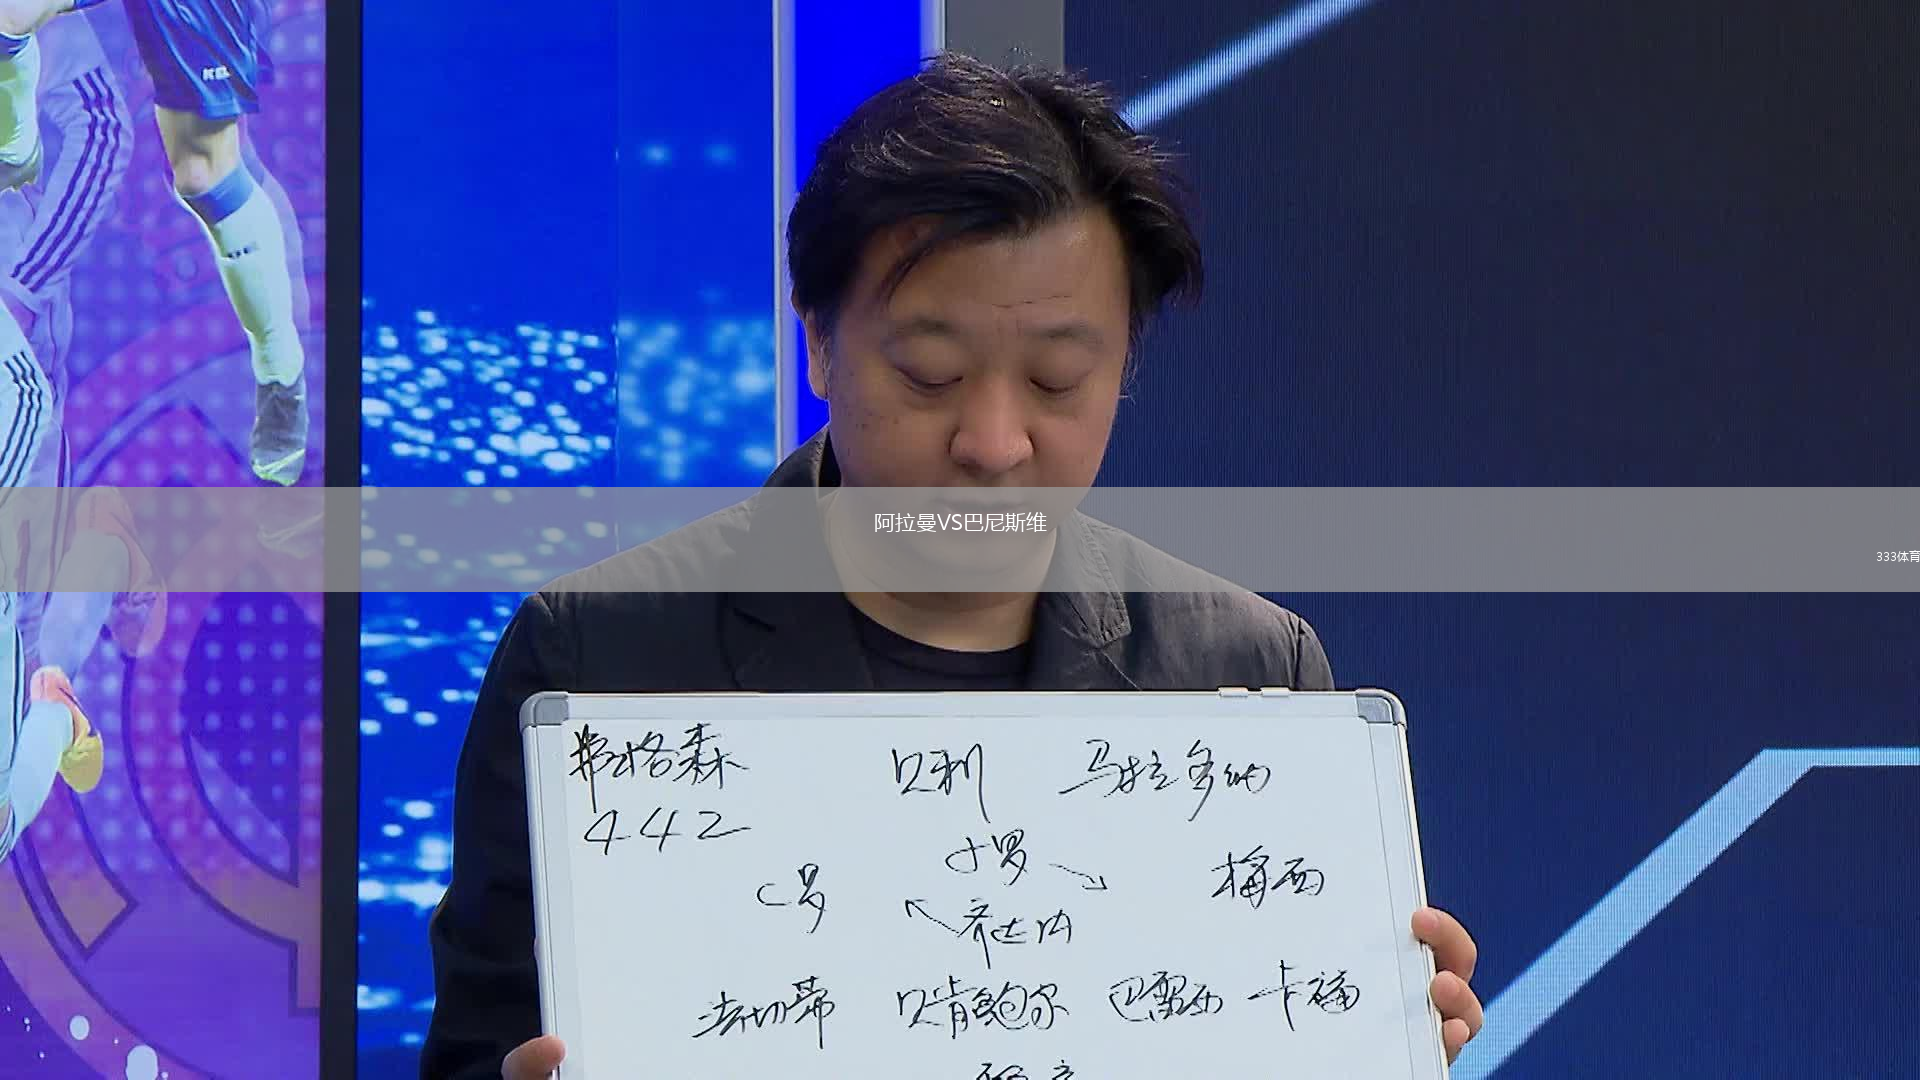 阿拉曼VS巴尼斯维
333体育
弗格森 贝利 马拉多纳
442
小罗
C罗 梅西
齐达内
法切蒂 贝肯鲍尔 巴雷西 卡福